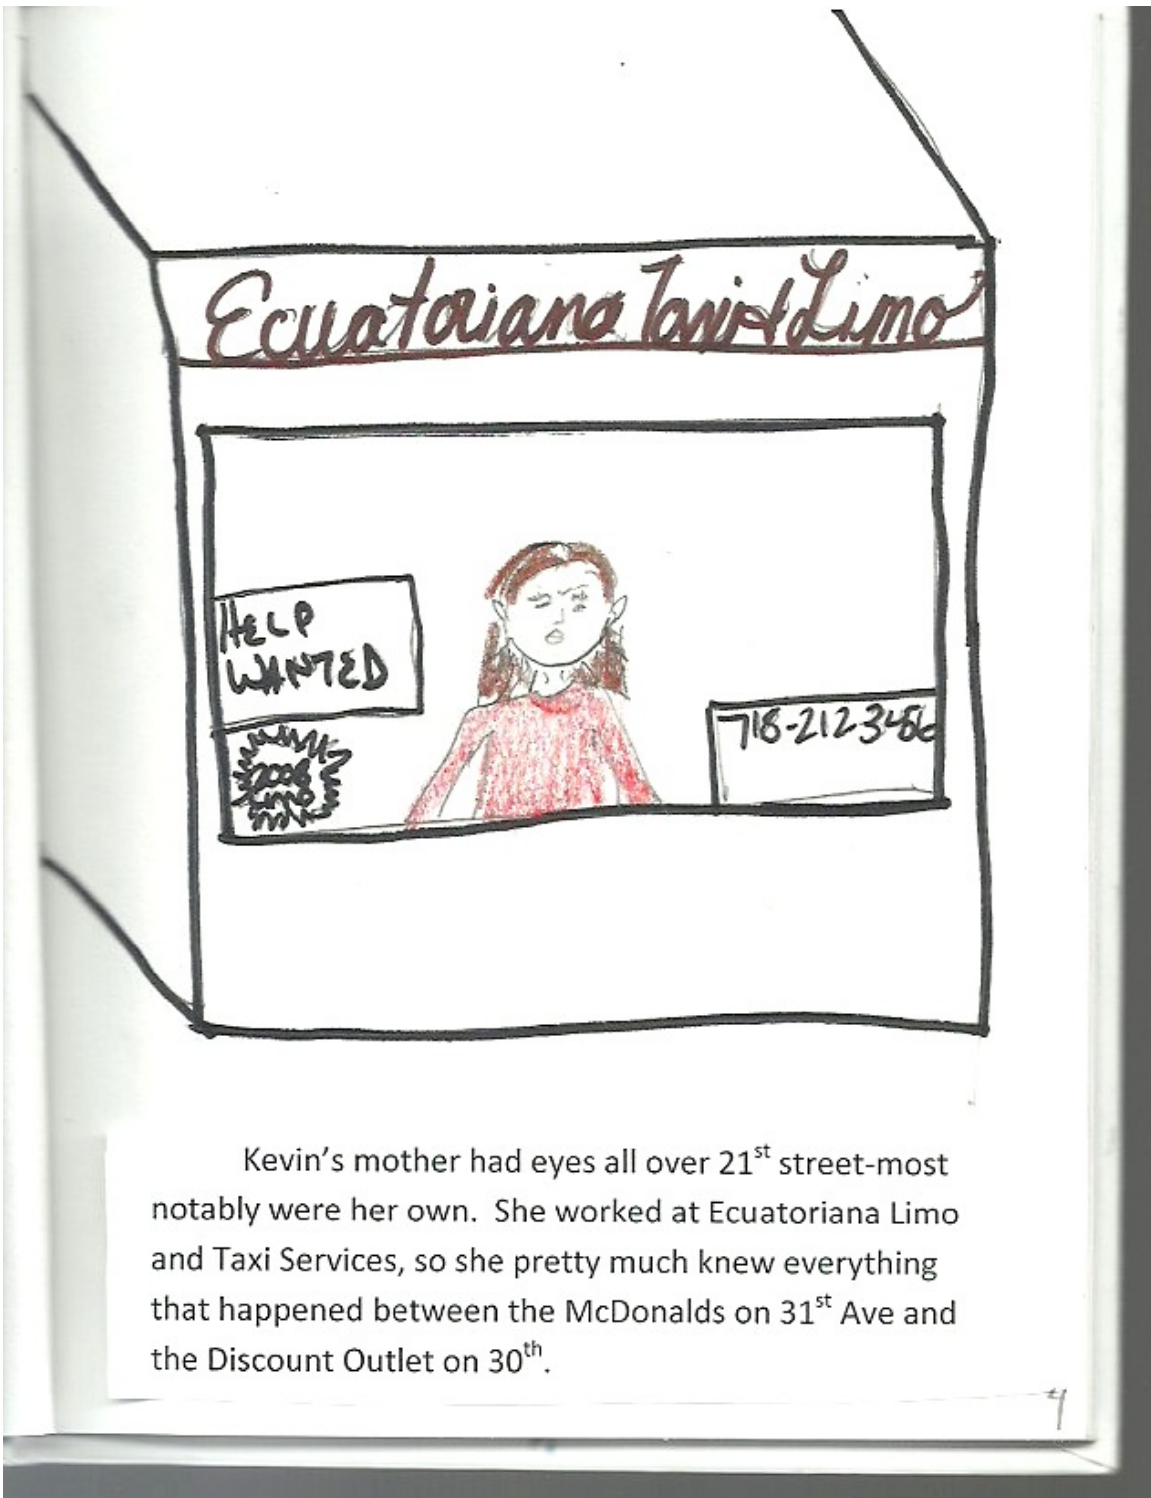 Ecuatoriana Taxi & Limo
HELP
WANTED
2008
Limo
718-212-3456
Kevin's mother had eyes all over 21st street-most
notably were her own. She worked at Ecuatoriana Limo
and Taxi Services, so she pretty much knew everything
that happened between the McDonalds on 31st Ave and
the Discount Outlet on 30th.
4